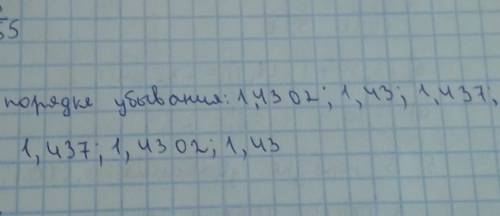 55
порядке убывания: 1,4302; 1,43; 1,437;
1,437; 1,4302; 1,43